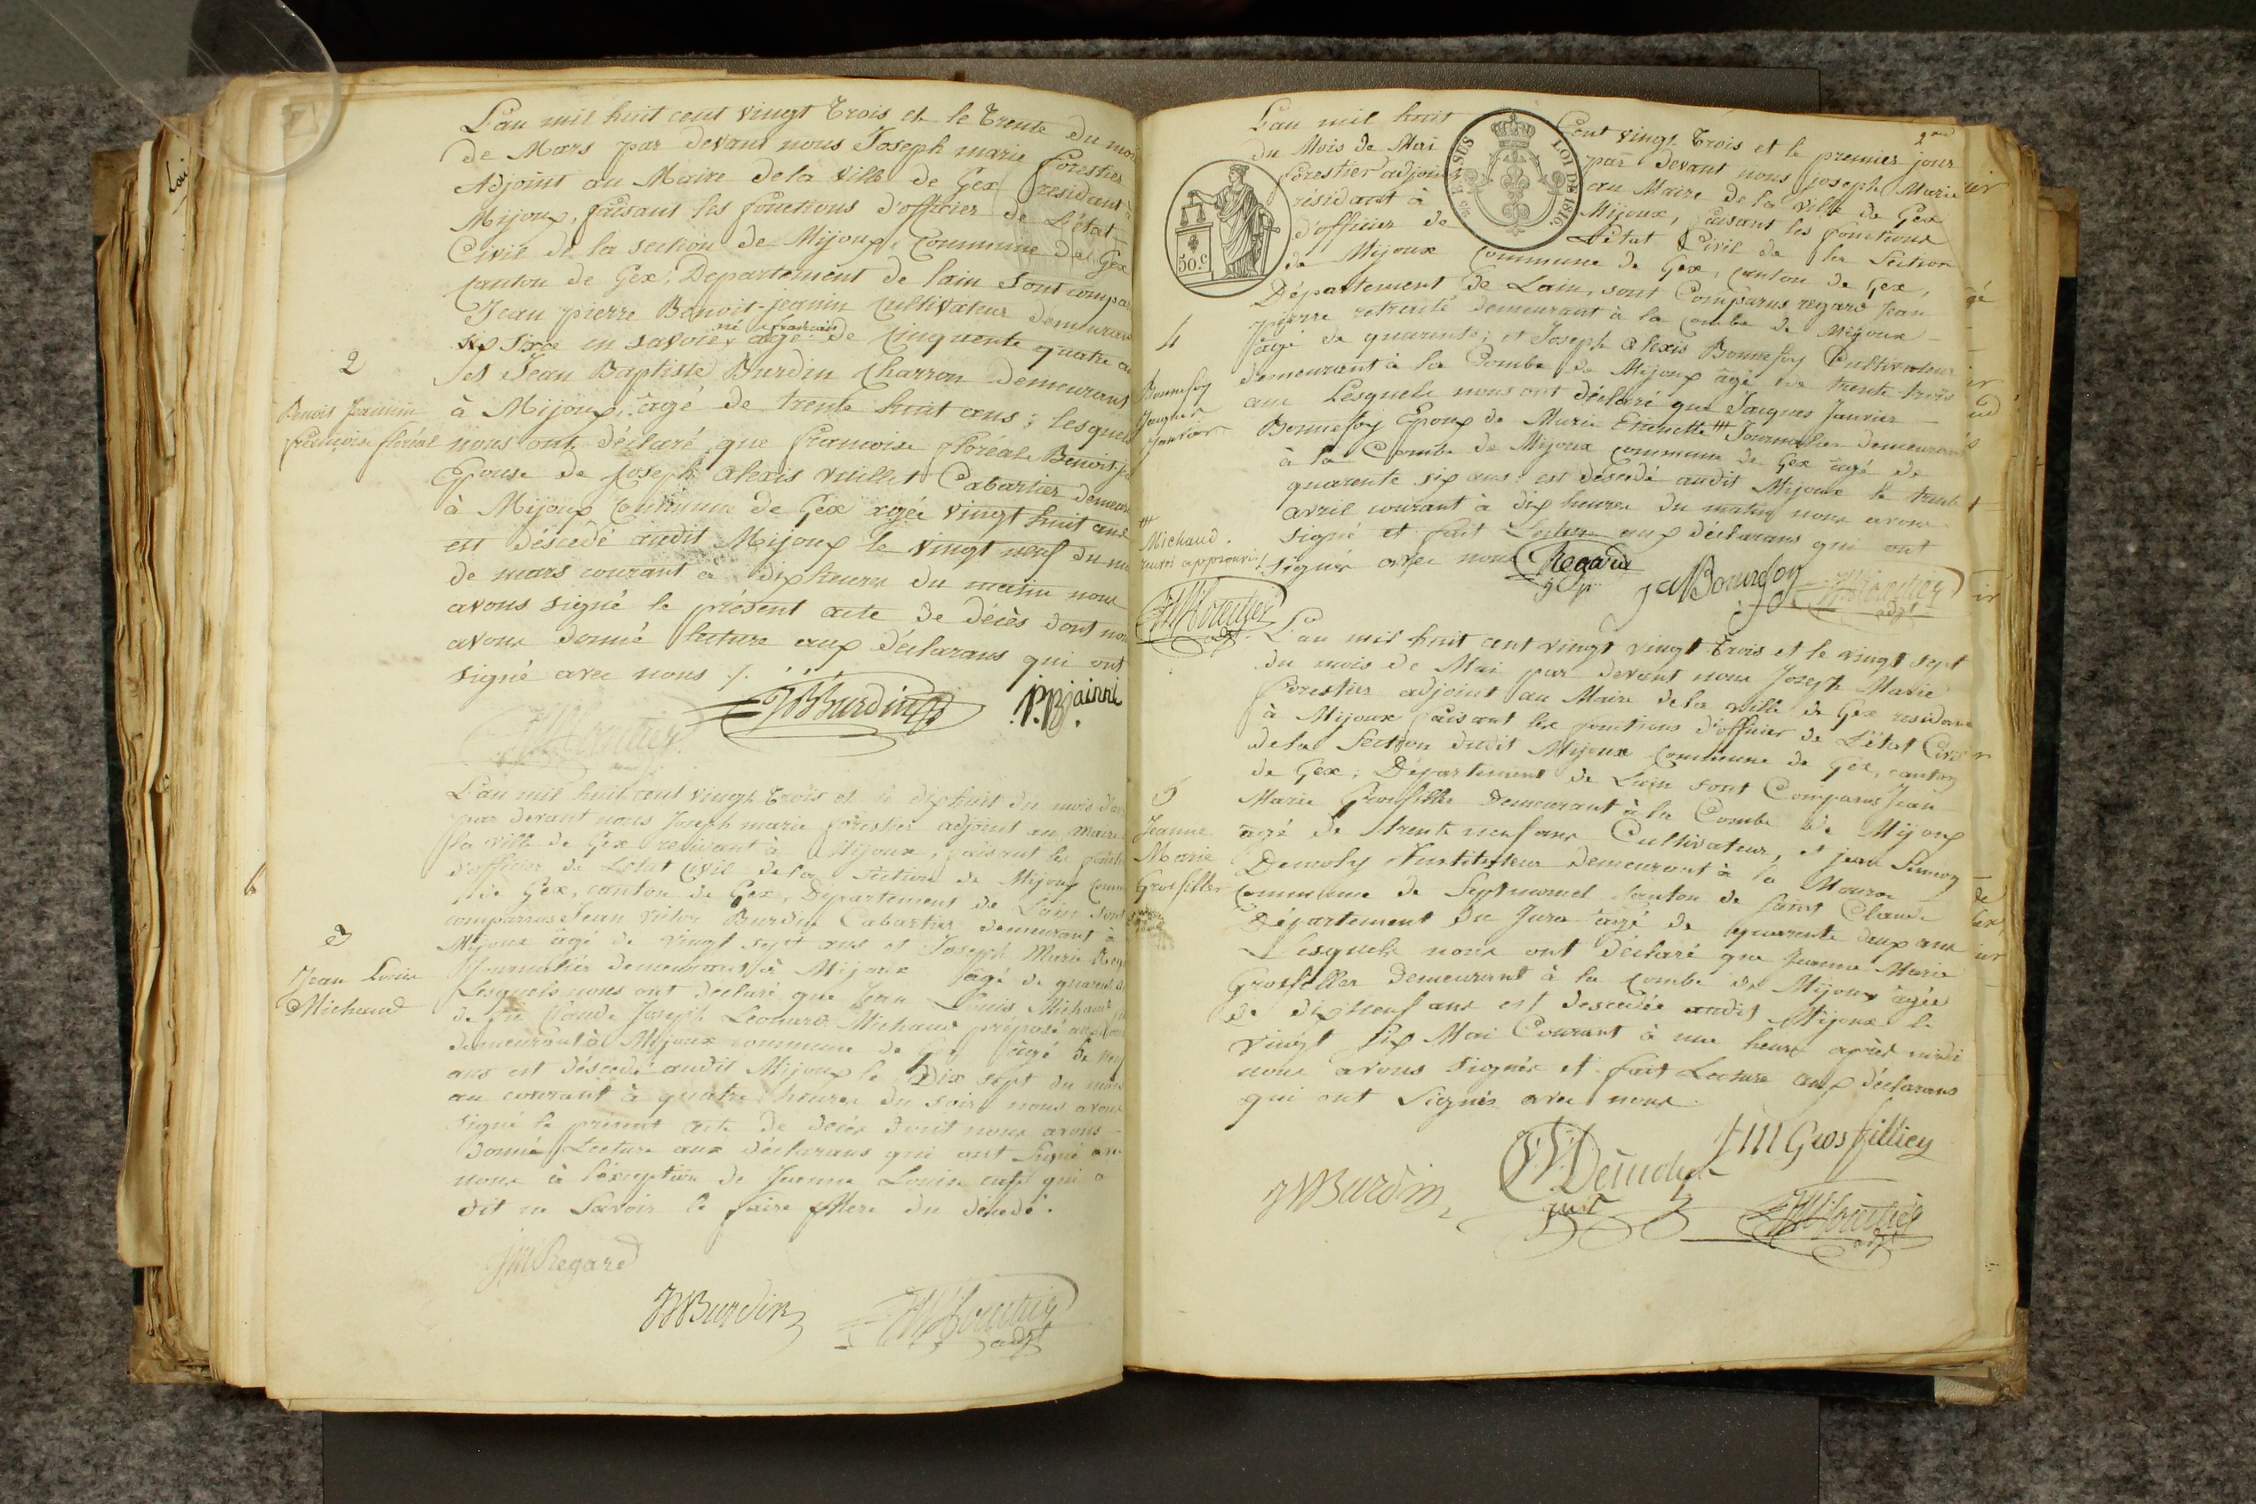 L'an mil huit cent vingt trois et le trente du mois
de Mars par devant nous Joseph marie forestier
Adjoint au Maire de la ville de Gex résidant à
Mijoux, faisant les fonctions d'officier de L'état
Civil de la section de Mijoux, Commune de Gex
canton de Gex, Departement de lain sont compar
Jean pierre Benoit-jeanin cultivateur demeurant
né français
en savoie, agé de Cinquente quatre a
et Jean Baptiste Burdin Charron demeurant
à Mijoux, âgé de trente huit ans ; lesquels
nous ont déclaré que francoise floréale Benoit-j
Epouse de joseph Alexis vuillet Cabartier demeur
à Mijoux Commune de Gex agée vingt huit ans
est déscédé audit Mijoux le vingt neuf du m
de mars courant à dix heures du matin nous
avons signé le présent acte de décès dont nou
avons donné lecture aux déclarans qui ont
signé avec nous ./.
2
Benoit Jeannin
françoise floréal
JBBurdin
P.B jainni
L'an mil huit cent vingt trois et le dixhuit du mois d'
par devant nous Joseph marie forestier adjoint au maire
la ville de Gex résidant à Mijoux, faisant les fonct
d'officier de L'état civil de la section de Mijoux Comm
de Gex, canton de Gex, Département de Lain sont
comparrus Jean victor Burdin Cabartier demeurant à
Mijoux âgé de vingt sept ans et Joseph Marie Reg
Journalier demeurant à Mijoux âgé de quarent
Lesquels nous ont declaré que Jean Louis Michaud
de feu Claude Joseph Léonard Michaud préposé aux
demeurant à Mijoux commune de Gex âgé de neuf
ans est déscedé audit Mijoux le Dix sept du mois
au courant à quatre heures du soir nous avons
signé le present acte de décès dont nous avons
donné Lecture aux déclarans qui ont signé avec
nous à l'éxception de Jeanne Louise qui a
dit ne savoir le faire du décedé.
3
Jean Louis
Michaud
JM Regard
JVBurdin
JMforestier
adjt
2me
L'an mil huit Cent vingt trois et le premier jour
du Mois de Mai par devant nous joseph Marie
Forestier adjoint au Maire de la ville de Gex
résidant à Mijoux, faisant les fonctions
d'officier de L'état Civil de la Section
de Mijoux Commune de Gex, canton de Gex,
Département de Lain, sont Comparus regard Jean
pierre retraité demeurant à la combe de Mijoux
âgé de quarente ; et Joseph Alexis Bonnefoy Cultivateur
demeurant à la Combe de Mijoux âgé de trente trois
ans Lesquels nous ont déclaré que Jacques Janvier
Bonnefoy Epoux de Marie Etiennette ### Journalier demeurant
à la Combe de Mijoux commune de Gex âgé de
quarente six ans est déscedé audit Mijoux le trente
avril courant à dix heures du matin nous avons
signé et fait Lecture aux déclarans qui ont
signés avec nous
50.c
LOI DE 1816
4
Bonnefoy
Janvier
###
Michaud.
JMforestier
adjt
Regard
JABonnefoy
JMforestier
adjt
L'an mil huit cent vingt vingt trois et le vingt sept
du mois de Mai par devant nous Joseph Marie
Forestier adjoint au Maire de la ville de Gex residant
à Mijoux faisant les fonctions d'officier de L'état Civil
de la Section dudit Mijoux Commune de Gex, canton
de Gex, Département de Lain sont Comparus Jean
Marie Grosfiller Demeurant à la Combe de Mijoux
âgé de trente neuf ans Cultivateur, et jean Simon
Institteur demeurant à la Moura
Commune de Septmoncel Canton de saint Claude
Département du Jura âgé de quarrente deux ans
Lesquels nous ont déclaré que Jeanne Marie
Grosfiller demeurant à la combe de Mijoux âgée
de dixneuf ans est descedée audit Mijoux le
vingt six Mai Courant à une heure après midi
nous avons signés et fait Lecture aux déclarans
qui ont Signés avec nous.
5
Jeanne
Marie
Grosfiller
JVBurdin
JM Grosfilliey
JMforestier
adjt